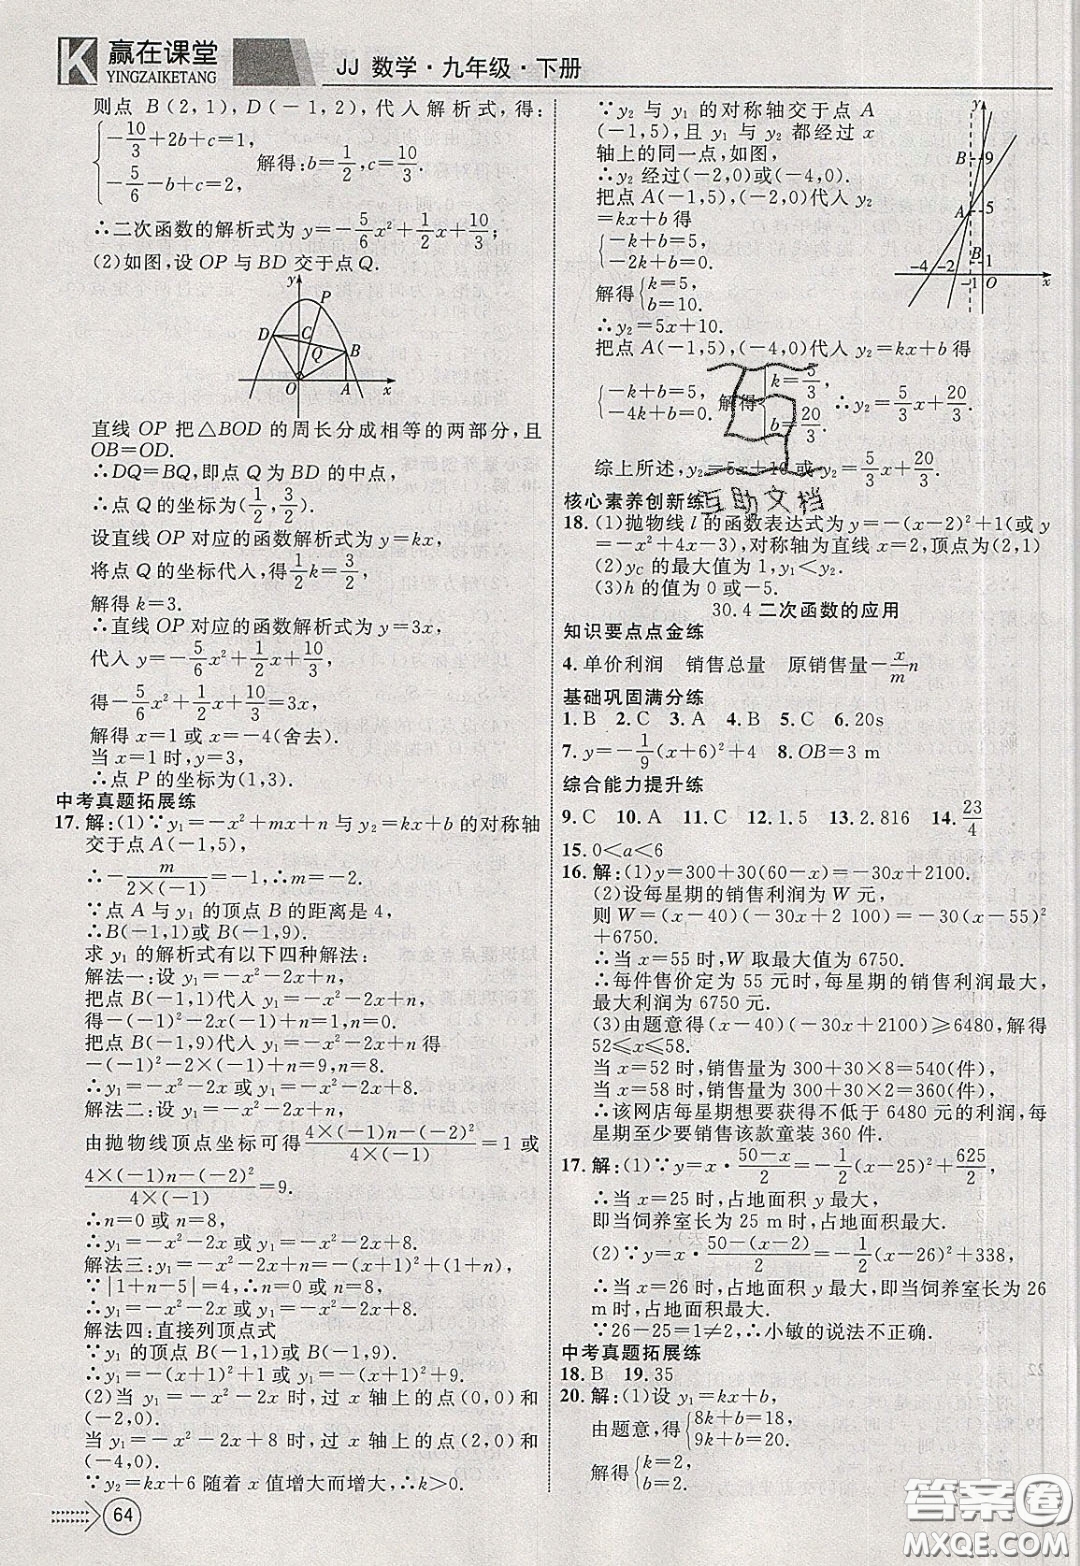 K 赢在课堂
YINGZAIKETANG
JJ 数学·九年级·下册
则点 B(2,1),D(-1,2),代入解析式,得:
{-10/3+2b+c=1,
-5/6-b+c=2, 解得:b=1/2,c=10/3.
∴二次函数的解析式为 y=-5/6x²+1/2x+10/3;
(2)如图,设 OP 与 BD 交于点 Q.
y
P
D
C
Q
B
O
A
x
直线 OP 把△BOD 的周长分成相等的两部分,且
OB=OD.
∴DQ=BQ,即点 Q 为 BD 的中点,
∴点 Q 的坐标为(1/2,3/2).
设直线 OP 对应的函数解析式为 y=kx,
将点 Q 的坐标代入,得1/2k=3/2,
解得 k=3.
∴直线 OP 对应的函数解析式为 y=3x,
代入 y=-5/6x²+1/2x+10/3,
得-5/6x²+1/2x+10/3=3x,
解得 x=1 或 x=-4(舍去).
当 x=1 时,y=3,
∴点 P 的坐标为(1,3).
中考真题拓展练
17.解:(1)∵y₁=-x²+mx+n 与 y₂=kx+b 的对称轴
交于点 A(-1,5),
∴-m/(2×(-1))=-1,∴m=-2.
∵点 A 与 y₁ 的顶点 B 的距离是 4,
∴B(-1,1)或 B(-1,9).
求 y₁ 的解析式有以下四种解法:
解法一:设 y₁=-x²-2x+n,
把点 B(-1,1)代入 y₁=-x²-2x+n,
得-(-1)²-2×(-1)+n=1,∴n=0.
把点 B(-1,9)代入 y₁=-x²-2x+n 得
-(-1)²-2×(-1)+n=9,∴n=8.
∴y₁=-x²-2x 或 y₁=-x²-2x+8.
解法二:设 y₁=-x²-2x+n,
由抛物线顶点坐标可得(4×(-1)n-(-2)²)/(4×(-1))=1 或
(4×(-1)n-(-2)²)/(4×(-1))=9.
∴n=0 或 n=8,
∴y₁=-x²-2x 或 y₁=-x²-2x+8.
解法三:∵y₁=-x²-2x+n=-(x+1)²+(1+n),
∵|1+n-5|=4,∴n=0 或 n=8,
∴y₁=-x²-2x 或 y₁=-x²-2x+8.
解法四:直接列顶点式
∵y₁ 的顶点为 B(-1,1)或 B(-1,9).
∴y₁=-(x+1)²+1 或 y₁=-(x+1)²+9.
(2)当 y₁=-x²-2x 时,过 x 轴上的点(0,0)和
(-2,0).
当 y₁=-x²-2x+8 时,过 x 轴上的点(2,0)和
(-4,0).
∵y₂=kx+6 随着 x 值增大而增大,∴k>0.
64
∵y₂ 与 y₁ 的对称轴交于点 A
(-1,5),且 y₁ 与 y₂ 都经过 x
轴上的同一点,如图,
∴y₂ 经过(-2,0)或(-4,0).
把点 A(-1,5),(-2,0)代入 y₂
=kx+b 得
{-k+b=5,
-2k+b=0.
解得{k=5,
b=10.
∴y₂=5x+10.
y
B 9
A 5
B 1
-4 -2 -1 O x
把点 A(-1,5),(-4,0)代入 y₂=kx+b 得
{-k+b=5,
-4k+b=0. 解得{k=5/3,
b=20/3. ∴y₂=5/3x+20/3.
综上所述,y₂=5x+10 或 y₂=5/3x+20/3.
互助文档
核心素养创新练
18.(1)抛物线 l 的函数表达式为 y=-(x-2)²+1(或 y
=-x²+4x-3),对称轴为直线 x=2,顶点为(2,1)
(2)y_C 的最大值为 1,y₁<y₂.
(3)h 的值为 0 或-5.
30.4 二次函数的应用
知识要点点金练
4.单价利润 销售总量 原销售量-x/m n
基础巩固满分练
1.B 2.C 3.A 4.B 5.C 6.20s
7.y=-1/9(x+6)²+4 8.OB=3 m
综合能力提升练
9.C 10.A 11.C 12.1.5 13.2.816 14.23/4
15.0<a<6
16.解:(1)y=300+30(60-x)=-30x+2100.
(2)设每星期的销售利润为 W 元,
则 W=(x-40)(-30x+2 100)=-30(x-55)²
+6750.
∴当 x=55 时,W 取最大值为 6750.
∴每件售价定为 55 元时,每星期的销售利润最大,
最大利润为 6750 元.
(3)由题意得(x-40)(-30x+2100)≥6480,解得
52≤x≤58.
当 x=52 时,销售量为 300+30×8=540(件),
当 x=58 时,销售量为 300+30×2=360(件),
∴该网店每星期想要获得不低于 6480 元的利润,每
星期至少要销售该款童装 360 件.
17.解:(1)∵y=x·(50-x)/2=-1/2(x-25)²+625/2,
∴当 x=25 时,占地面积 y 最大,
即当饲养室长为 25 m 时,占地面积最大.
(2)∵y=x·(50-(x-2))/2=-1/2(x-26)²+338,
∴当 x=26 时,占地面积最大,即当饲养室长为 26
m 时,占地面积最大.
∵26-25=1≠2,∴小敏的说法不正确.
中考真题拓展练
18.B 19.35
20.解:(1)设 y₁=kx+b,
由题意,得{8k+b=18,
9k+b=20.
解得{k=2,
b=2,
答案圈
MXQE.COM